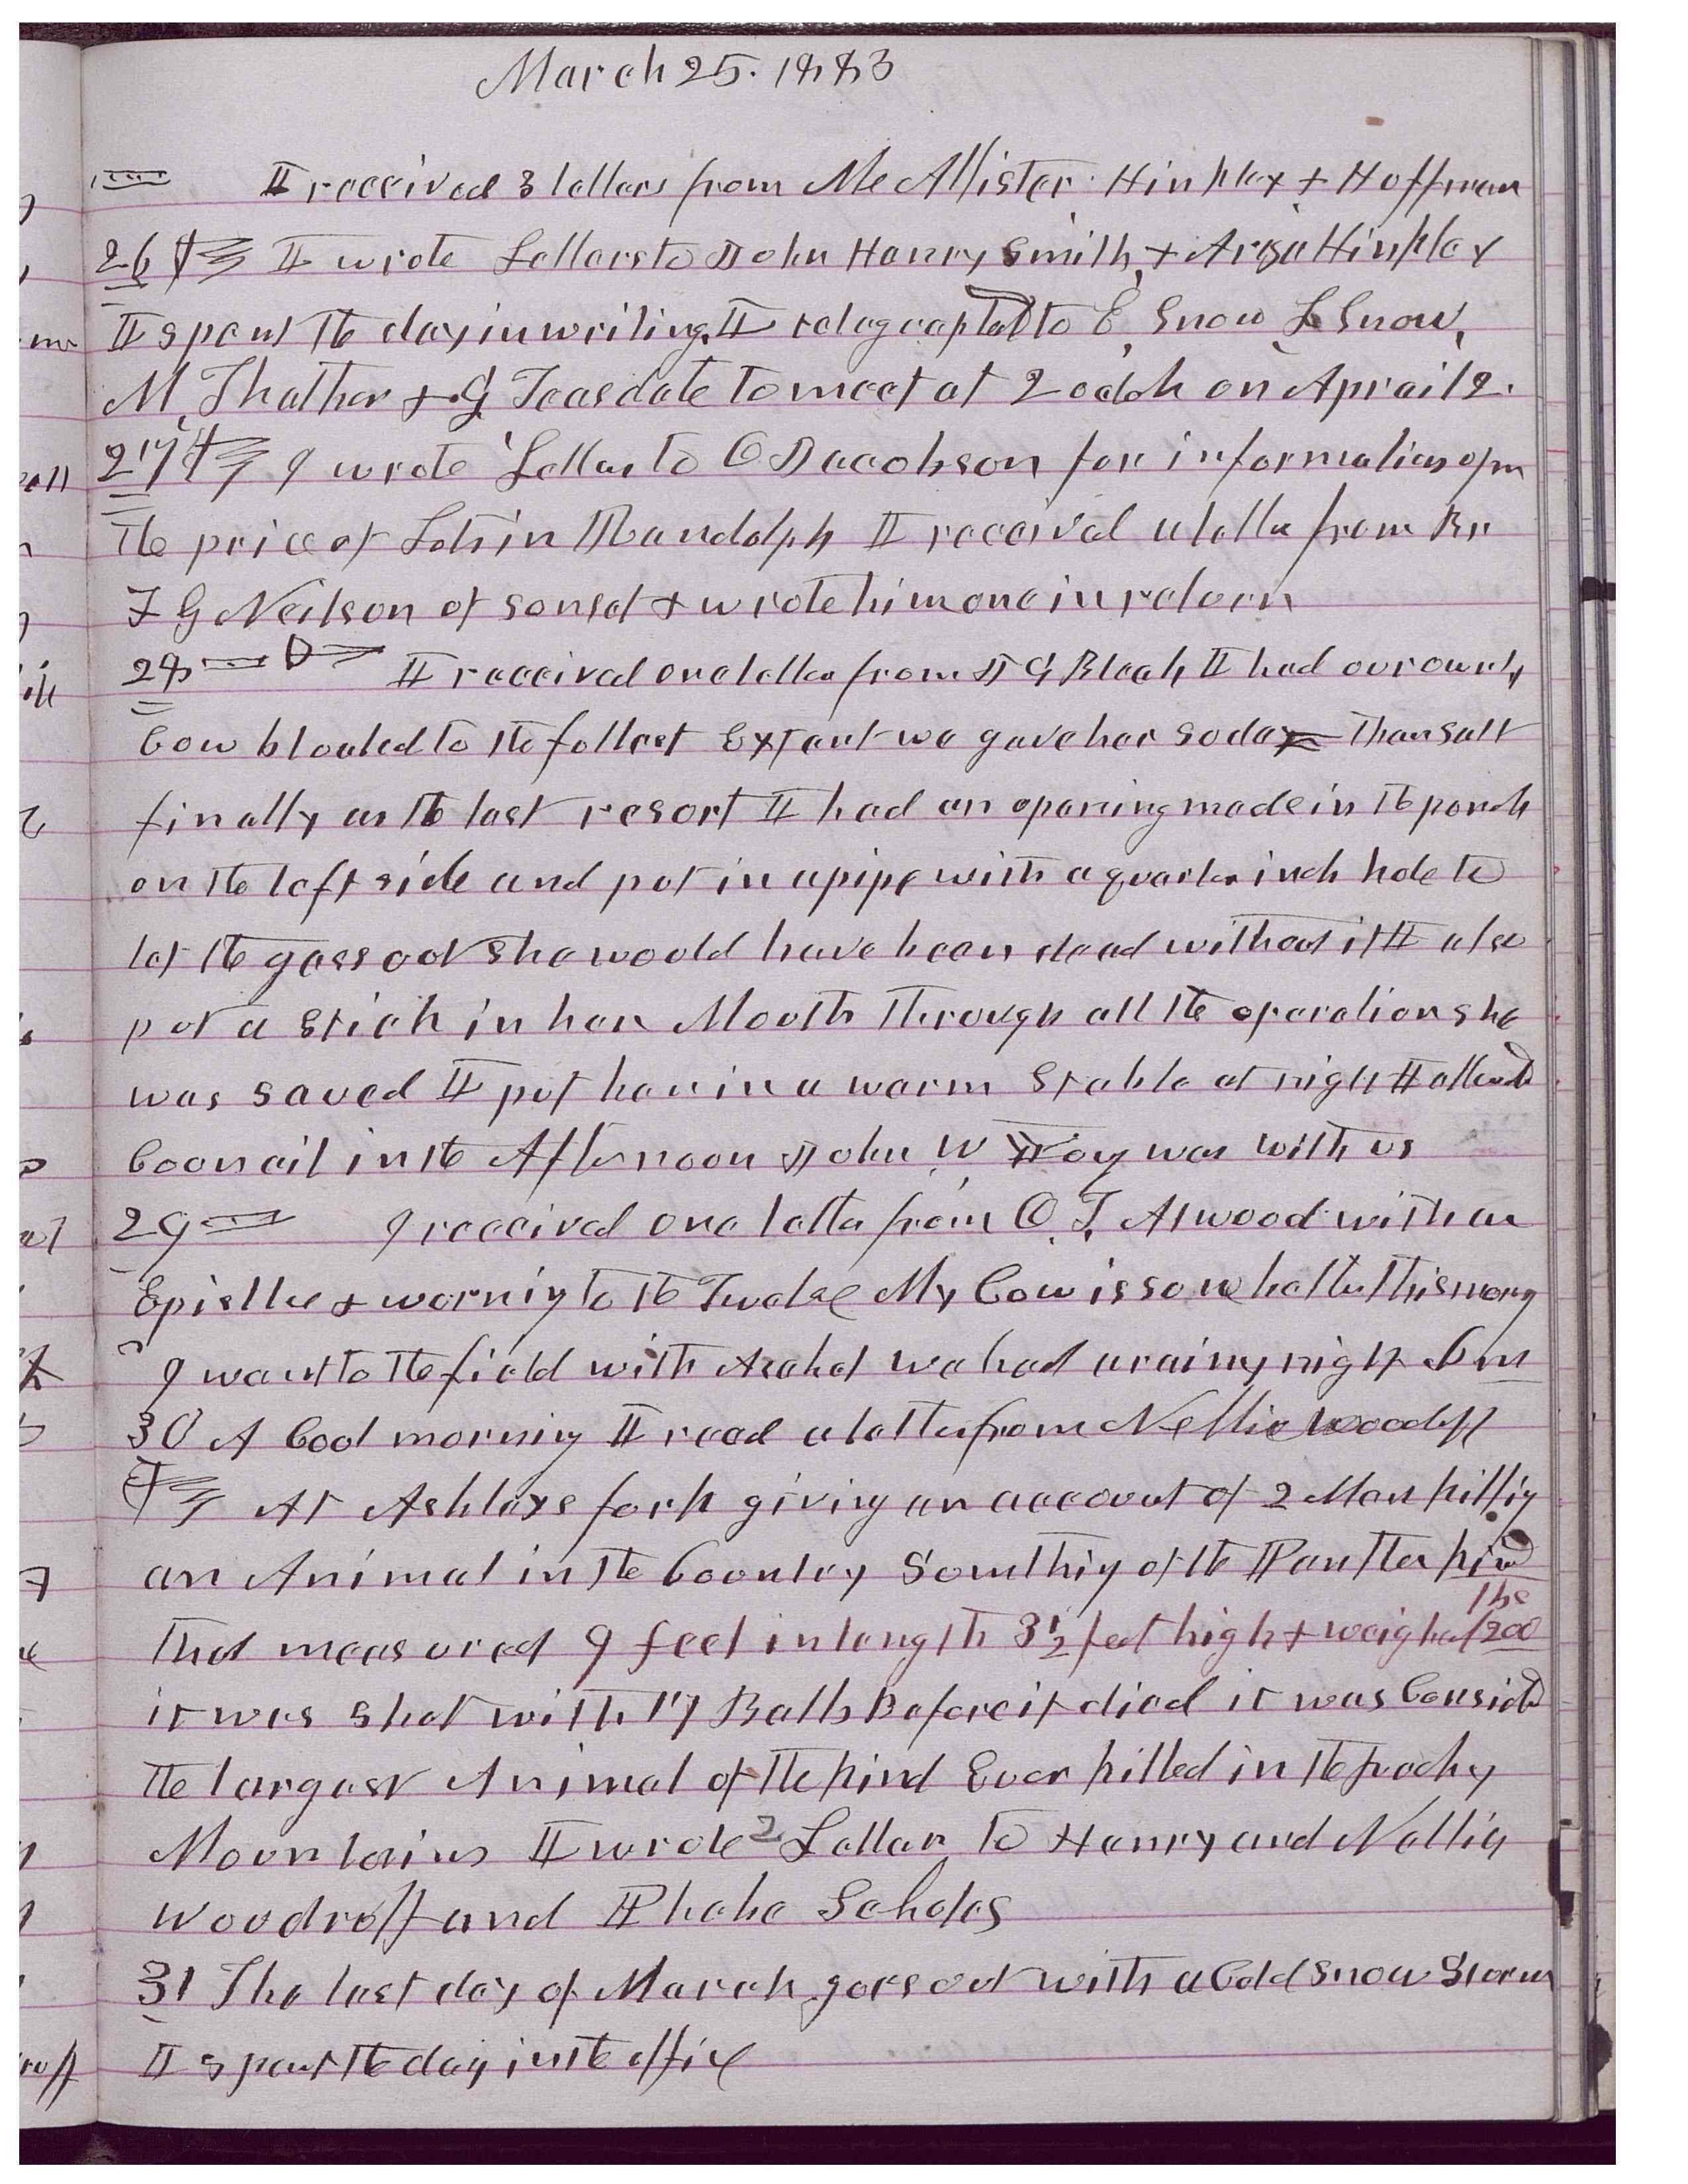 March 25. 1883
I received 3 letters from McAllister Hinkley + Hoffman
26 I wrote Letters to John Henry Smith, + Arza Hinkley
I spent the day in writing. I telegraphed to E, Snow L Snow,
M, Thatcher + G Teasdale to meet at 2 oclok on Aprail 2.
27 I wrote Letter to O Jacobson for information upon
the price of Lots in Randolph I received a letter from Br
F G Neilson of & wrote him one in return
28 I received one letter from J G Bleak I had our ownly
Cow bloated to the fullest Extent we gave her soda Then salt
finally as the last resort I had an opening made in the ponch
on the left side and put in a pipe with a quarter inch hole to
let the gass out She would have been dead without it I also
put a stick in her Mouth Through all the operation she
was saved I put her in a warm Stable at night I attend
Councail in the Afternoon John W Young was with us
29 I received one letter from O. T. Atwood with an
Epistle & worning to the Twelve My Cow is some better this morng
I went to the field with Asahel we had a rainy night 6 m
30 A Cool morning I recd a letter from Nellie Woodruff
At Ashleys fork giving an account of 2 Men killing
an Animal in the Country Something of the Panther kind
That measured 9 feet in length 3½ feet high & weighed 200
lbs
it was shot with 17 Balls Before it died it was Consid
the largest Animal of the kind Ever killed in the Rocky
Mountains I wrote 2 Letters to Henry and Nellie
Woodruff and Phebe Scholes
31 The last day of March goes out with a Cold Snow Storm
I spent the day in the office